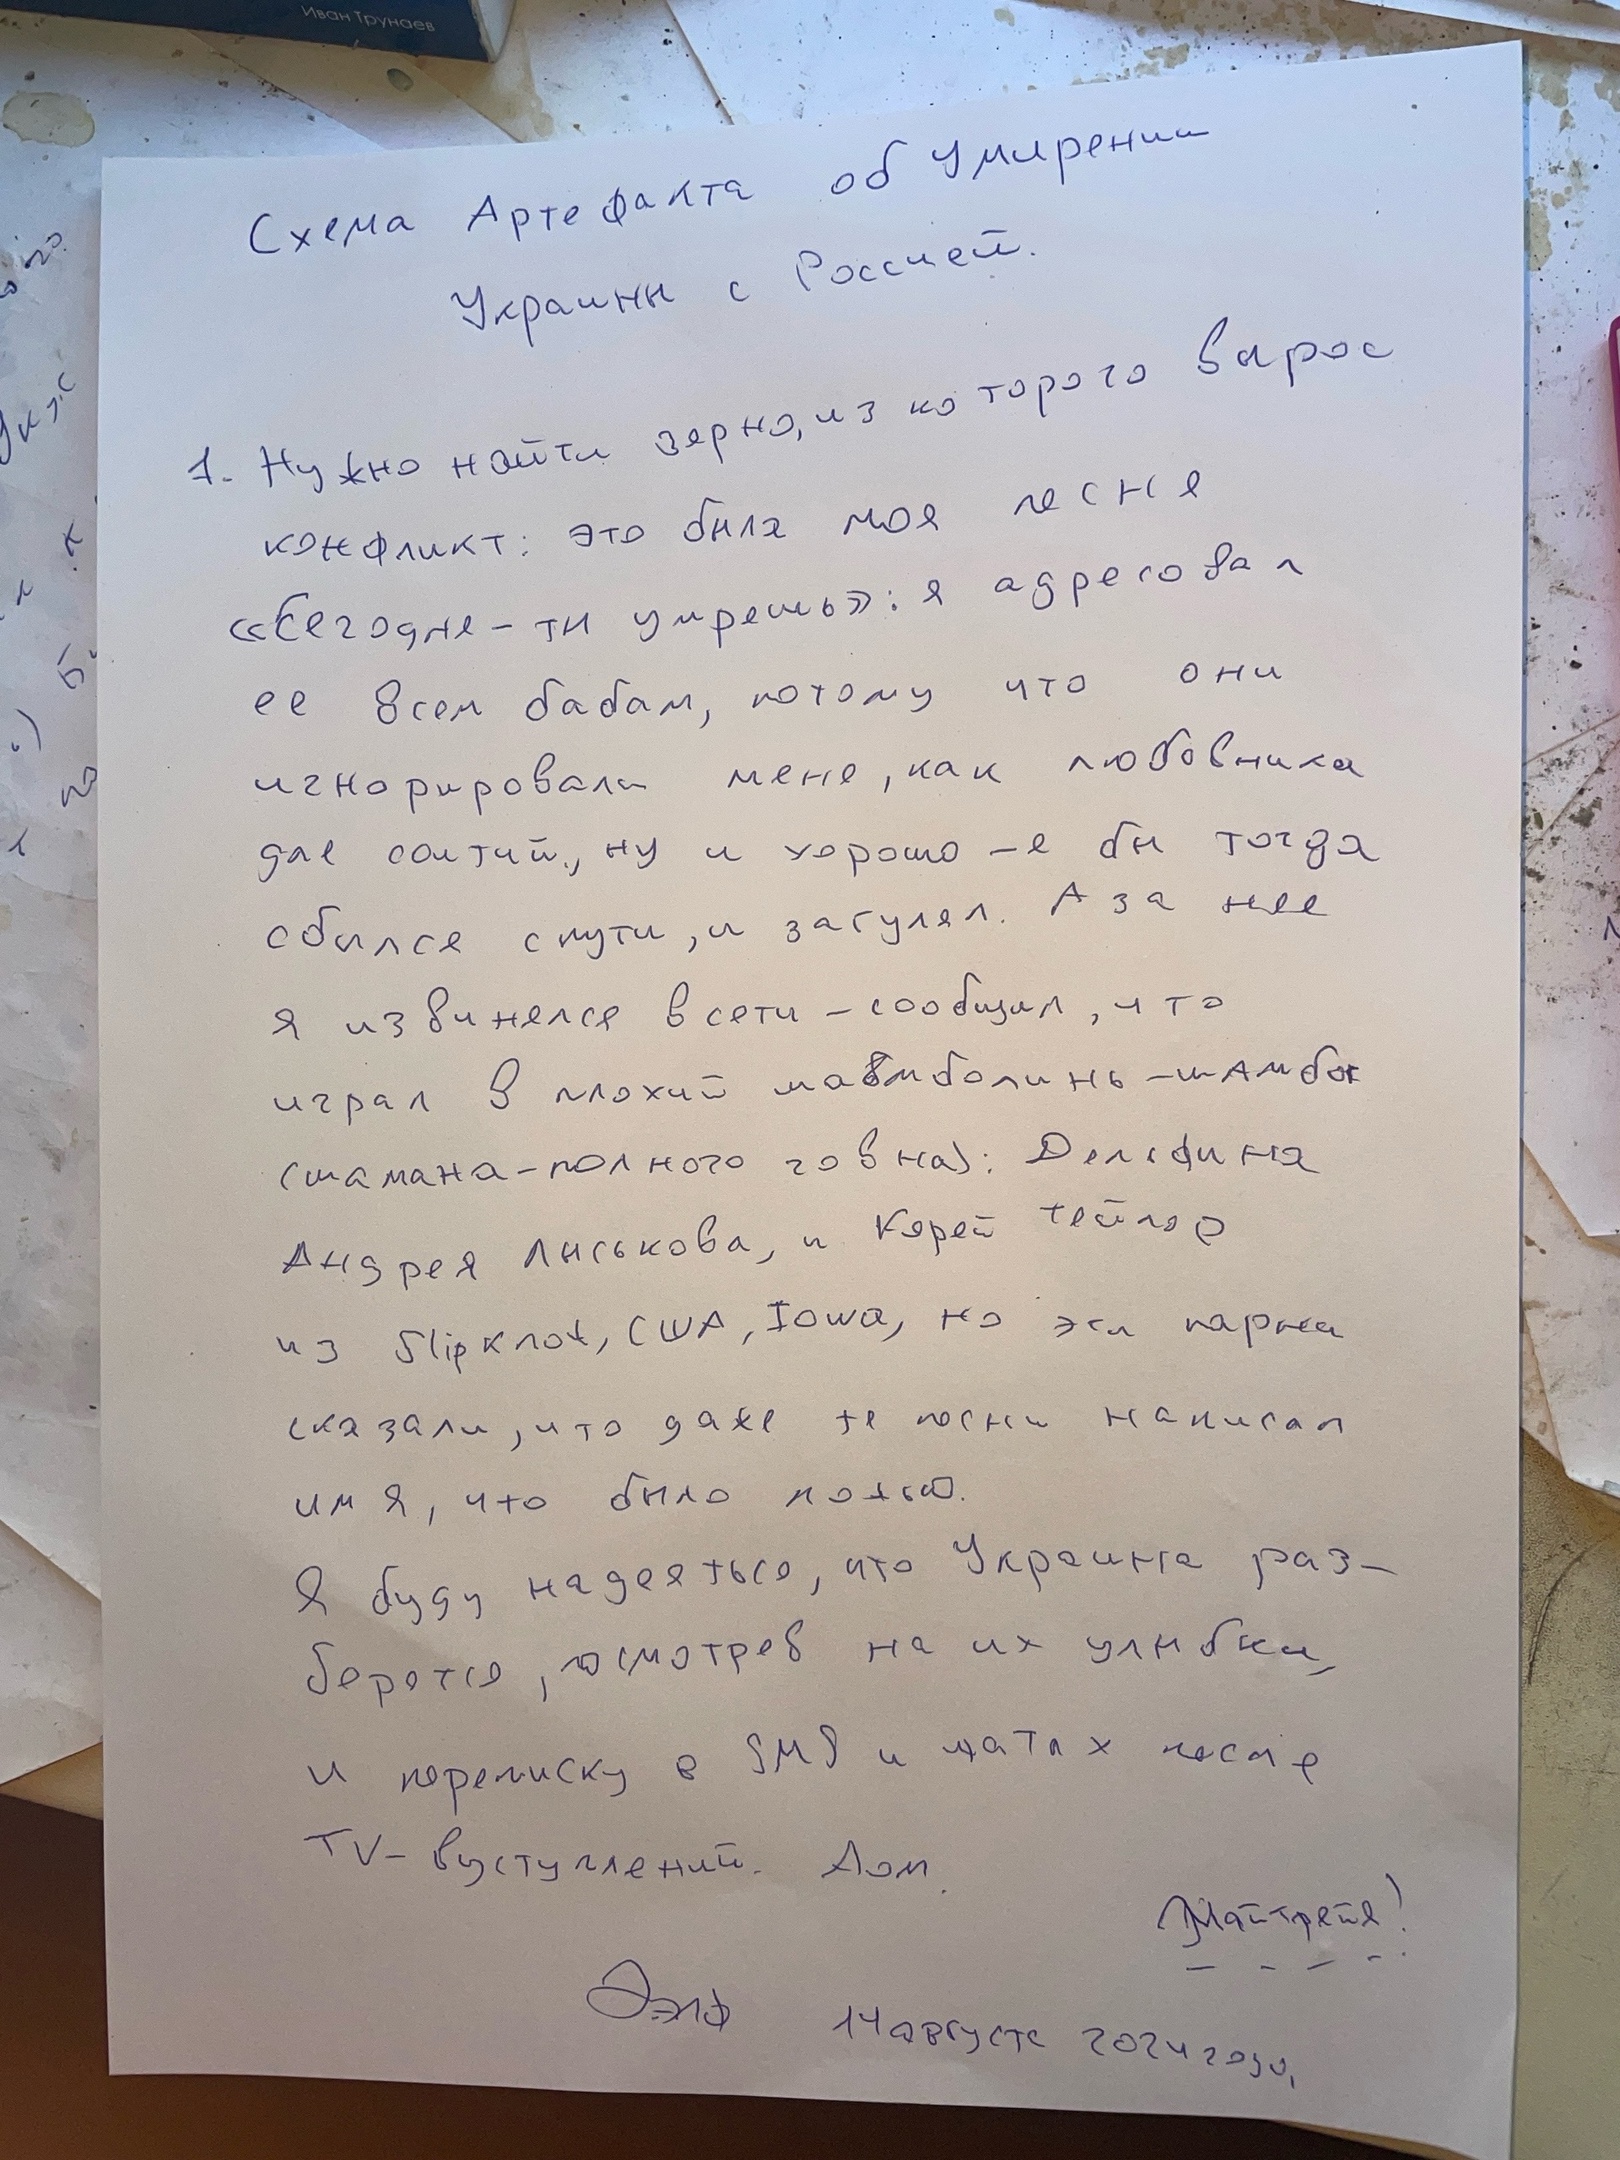 Иван Трунаев
Схема Артефакта об Умирении
Украины с Россией.
1. Нужно найти зерно, из которого вырос
конфликт: это была моя песня
«Сегодня - ты умрешь»: я адресовал
ее всем бабам, потому что они
игнорировали меня, как любовника
для соитий, ну и хорошо - я бы тогда
сбился спути, и загулял. А за нее
я извинялся в сети - сообщил, что
играл в плохий - шамбох
(шамана-полного говна): Дельфина
Андрея Лыськова, и Корей Тейлор
из Slipknot, США, Iowa, но эти парни
сказали, что даже те песни написал
им я, что было ложью.
Я буду надеяться, что Украина раз-
берется, посмотрев на их улыбки,
и переписку в SMS и чатах после
TV-выступлений. Дом.
Майтрейя!
14 августа 2024 года,